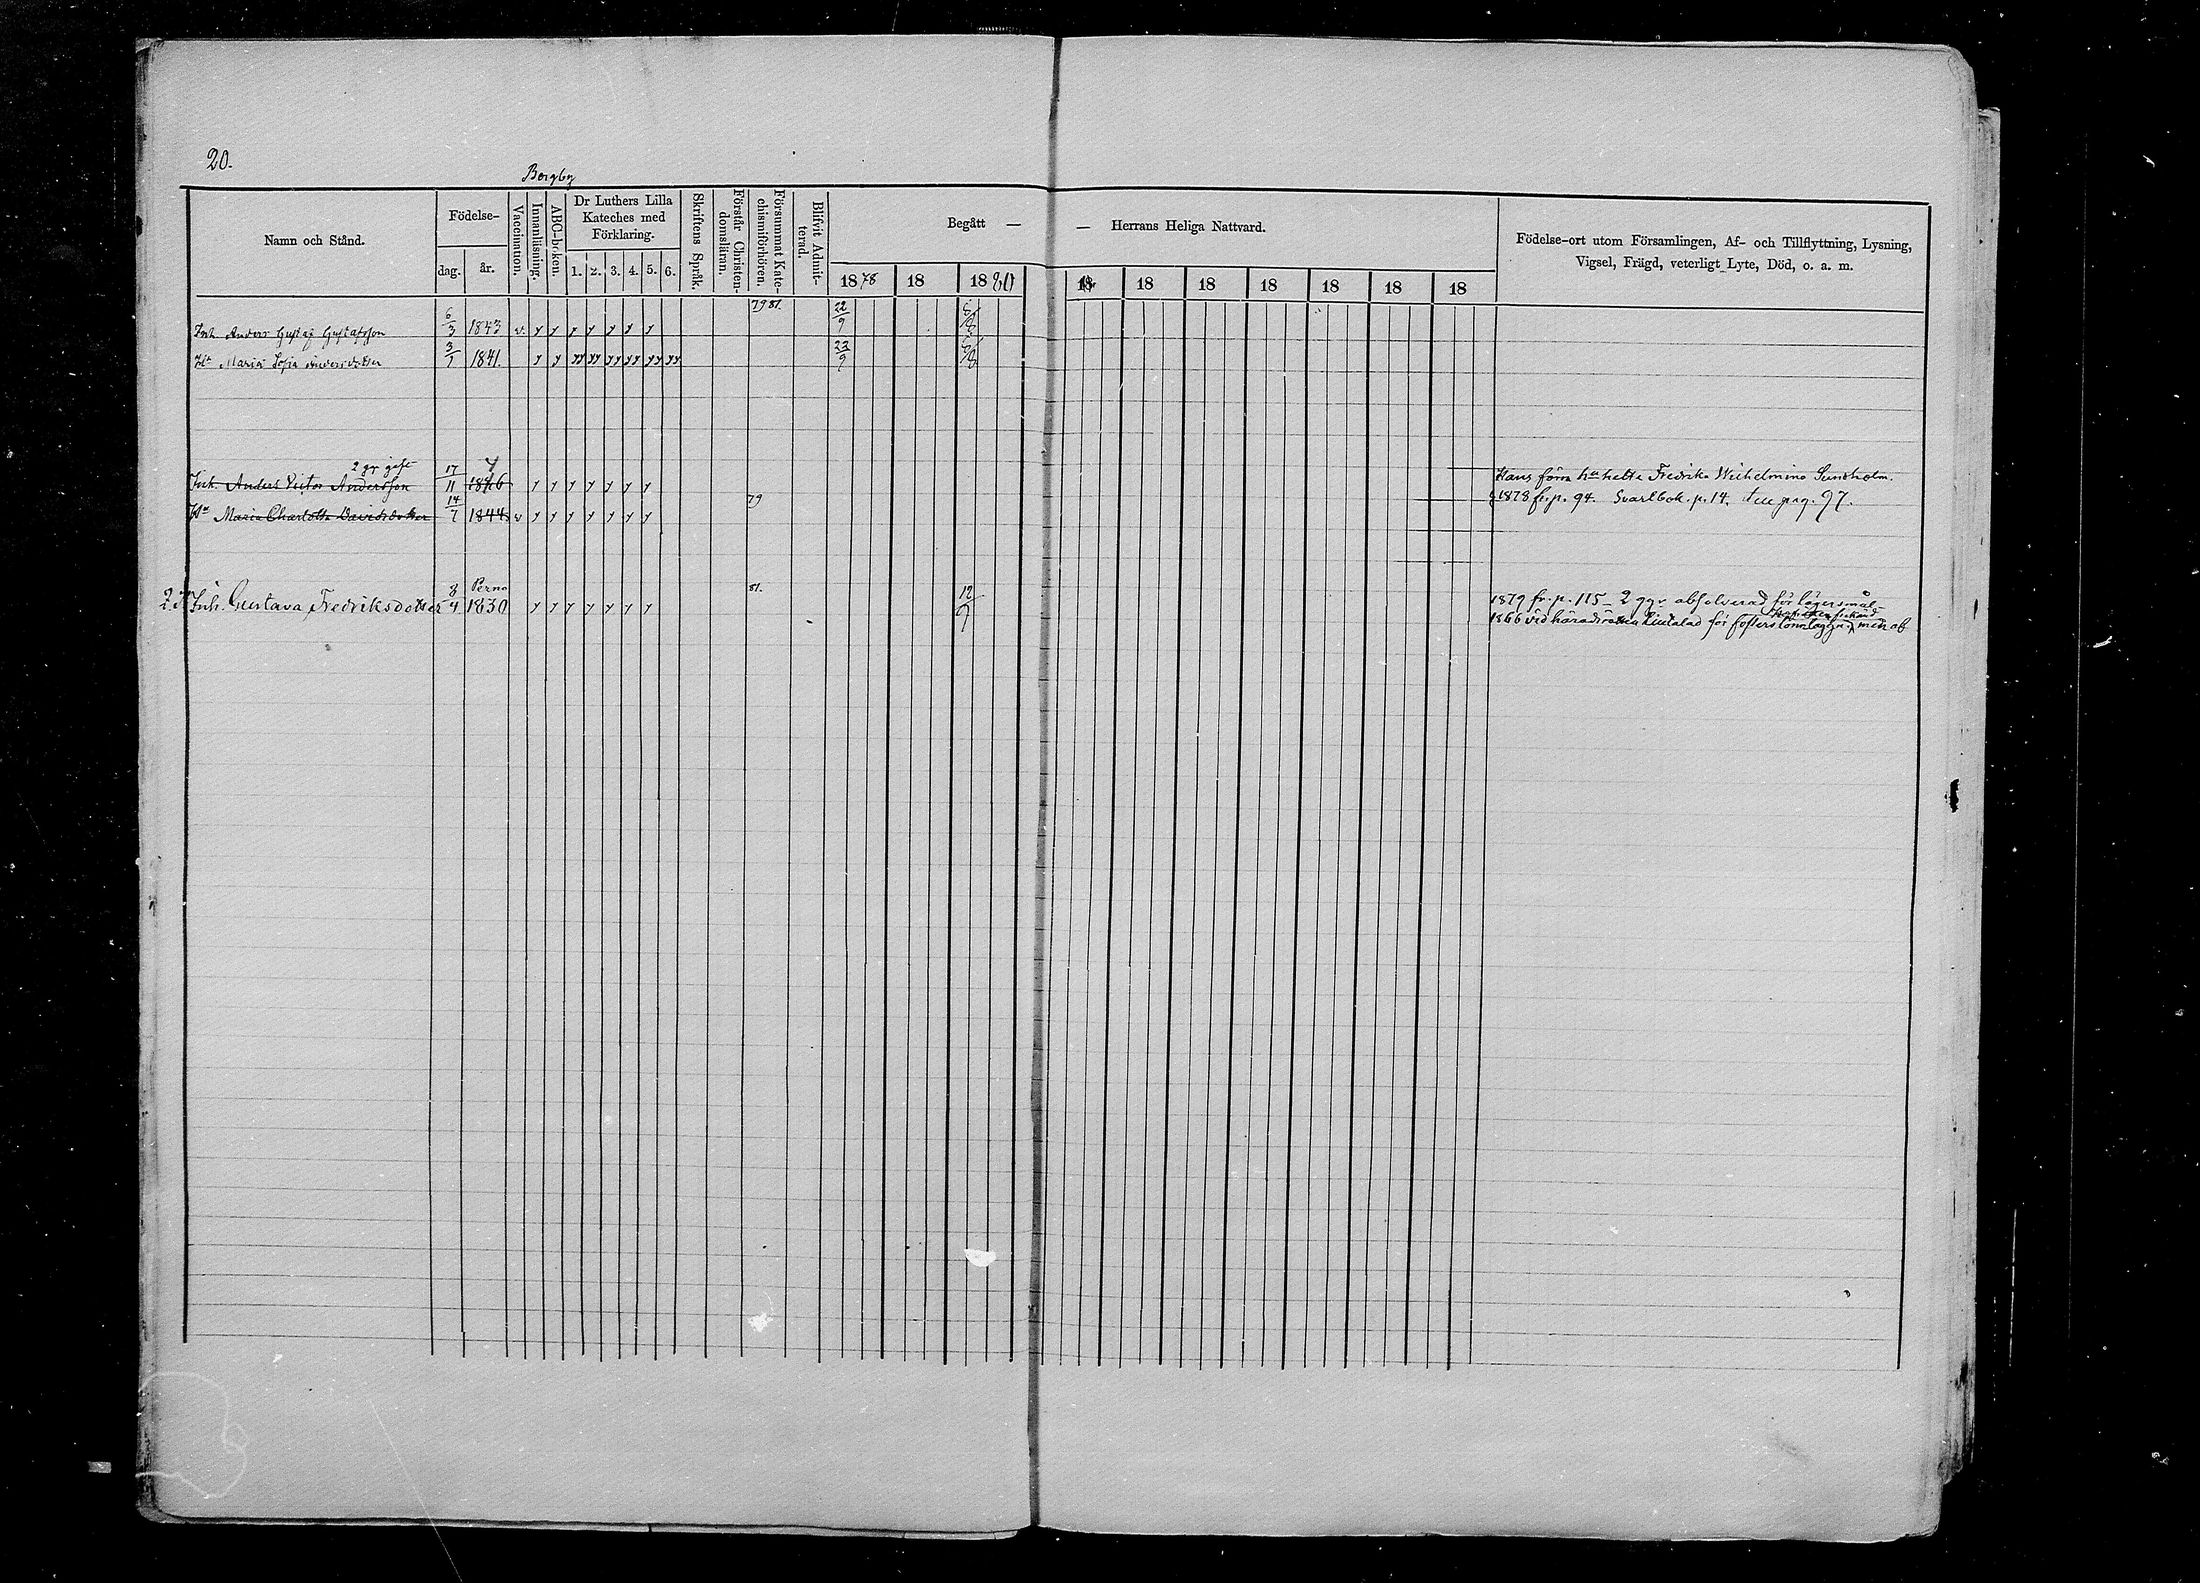 20.
Bergby
Namn och Stånd.
Födelse-
dag.
år.
Vaccination.
Innanläsning.
ABC-boken.
Dr Luthers Lilla
Kateches med
Förklaring.
1. 2. 3. 4. 5. 6.
Skriftens Språk.
Förstår Christen-
domsläran.
Försummat Kate-
chismiförhören.
Blifvit Admit-
terad.
Begått — — Herrans Heliga Nattvard.
1878 18 1880 18 18 18 18 18 18 18
Födelse-ort utom Församlingen, Af- och Tillflyttning, Lysning,
Vigsel, Frägd, veterligt Lyte, Död, o. a. m.
79 81.
Inh. Anders Gustaf Gustafsson 6/3 1843 v. y y y y y y y 22/9
Hu Maria Sofia Andersdotter 3/1 1841. y y yy yy yy yy yy yy 23/9
2 gr gift
Inh. Anders Victor Andersson 17/11 1846 y y y y y y y Hans förra hu hette Fredrika Wilhelmina Sundholm.
Hu Maria Charlotta Davidsdotter 14/7 1844 v y y y y y y y 79 1878 fr. p. 94. Svartbok. p. 14. pag. 97.
Perno
Inh. Gustava Fredriksdotter 8/4 1830 y y y y y y y 81. 12/9 1879 fr. p. 115 — 2 ggr absolverad för lägersmål
1866 vid häradsrätten för men